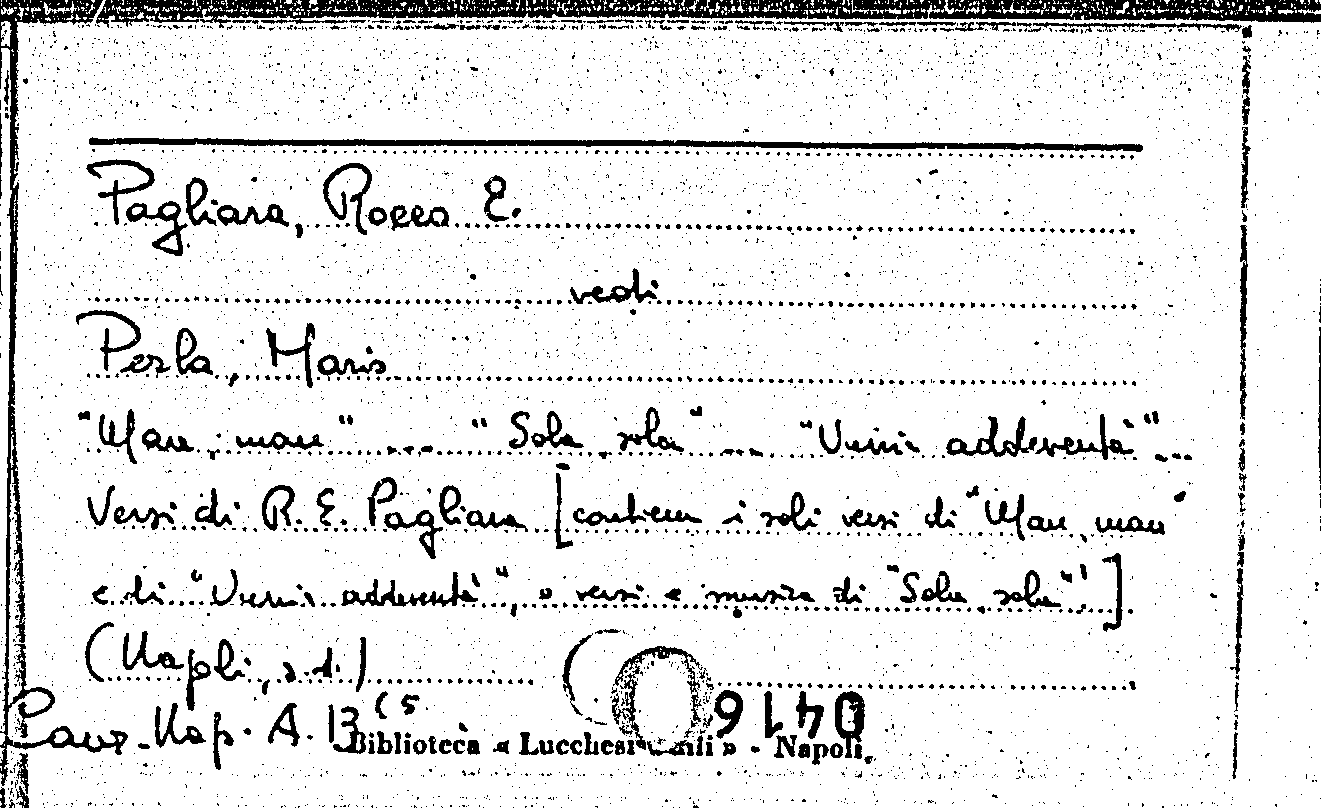 Pagliara, Rocco E.
vedi
Perla, Mario
"Mare, mare" ... "Sola, sola" ... "Vurria addeventà" ...
Versi di R. E. Pagliara [contiene i soli versi di "Mare, mare"
e di "Vurria addeventà", e versi e musica di "Sola, sola"]
(Napoli, s.d.)
Canz. Nap. A. 13 (5
Biblioteca « Lucchesi » - Napoli.
0416